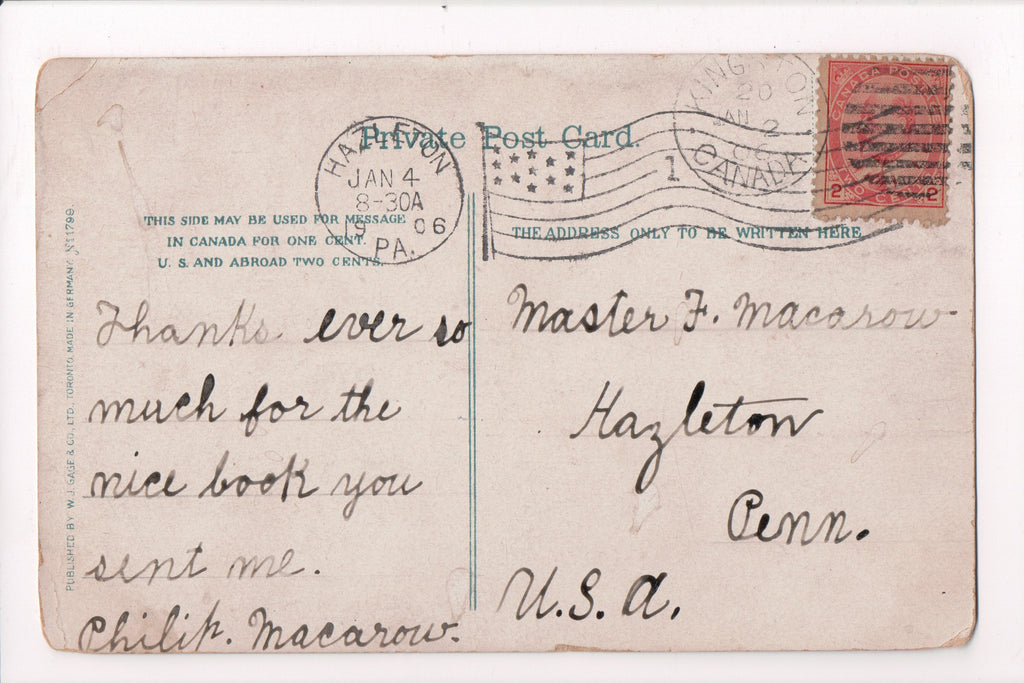 Private Post Card.
HAZLETON
JAN 4
8-30A
19 06
PA.
1
KINGSTON
20
JAN 2
06
CANADA
CANADA POSTAGE
2 2
TWO CENTS
THIS SIDE MAY BE USED FOR MESSAGE
IN CANADA FOR ONE CENT.
U. S. AND ABROAD TWO CENTS.
THE ADDRESS ONLY TO BE WRITTEN HERE
PUBLISHED BY W. J. GAGE & CO., LTD., TORONTO. MADE IN GERMANY. Nº11799.
Thanks ever so
much for the
nice book you
sent me.
Philip. Macarow.
Master F. Macarow
Hazleton
Penn.
U.S.A.